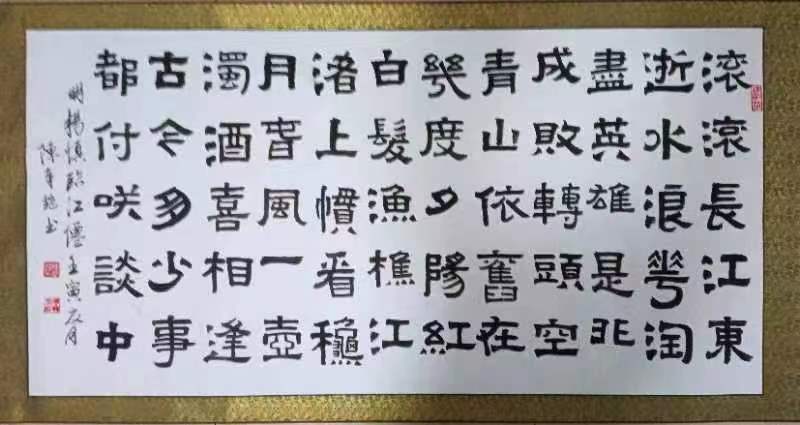 滚滚長江東
逝水浪花淘
盡英雄是非
成敗轉頭空
青山依舊在
幾度夕陽紅
白髮漁樵江
渚上慣看龝
月春風一壺
濁酒喜相逢
古今多少事
都付咲談中
明楊慎臨江僊壬寅
陳書